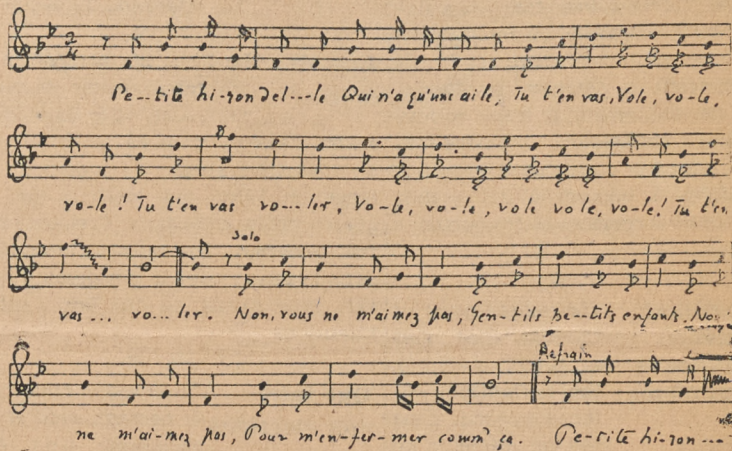 2/4
Pe--tite hi-ron del---le Qui n'a qu'une aile, Tu t'en vas, Vole, vo-le,
vo-le! Tu t'en vas vo---ler, Vo-le, vo-le, vole vole, vo-le! Tu t'en
Solo
vas ... vo--- ler. Non, vous ne m'aimez pas, Gen-tils pe--tits enfants. Non
Refrain
ne m'ai-mez pas, Pour m'en-fer-mer comm' ça. Pe-tite hi-ron---